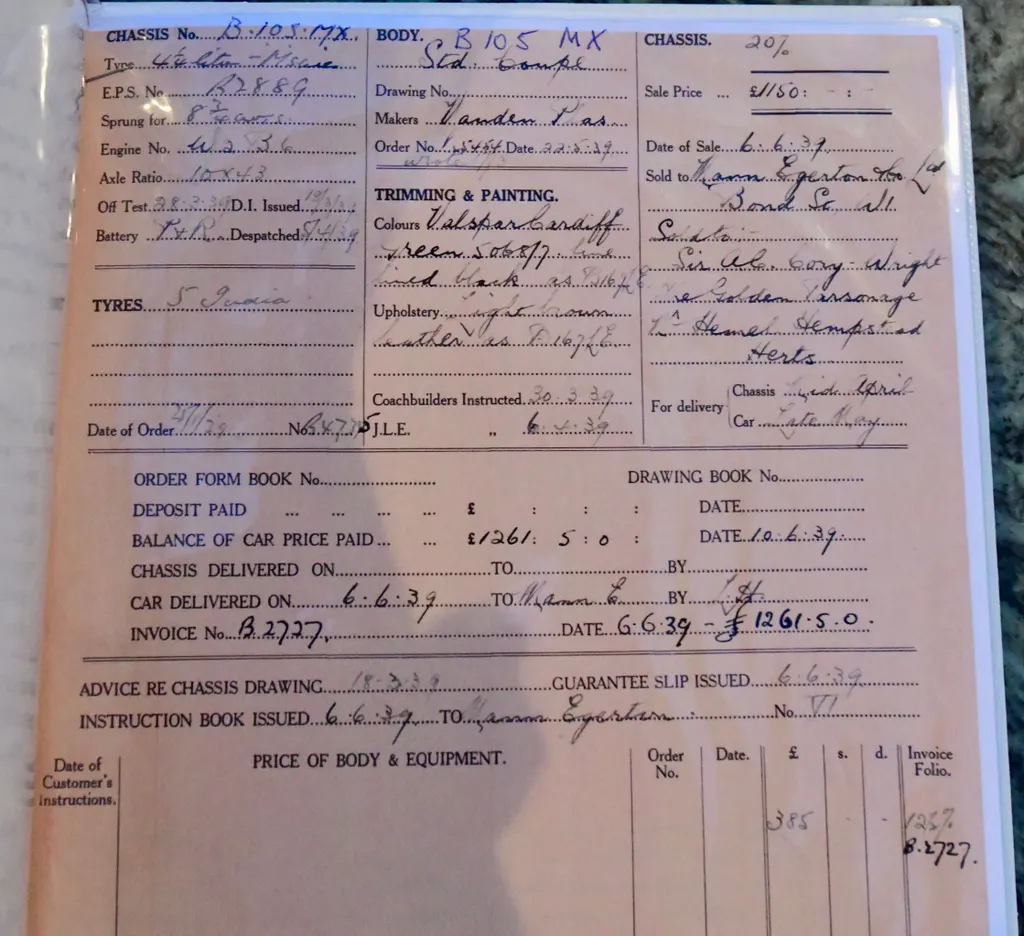 CHASSIS No. B.105.MX.
Type 4¼ litre
E.P.S. No R2889
Sprung for 8¾
Engine No. W2 B6
Axle Ratio 10x43
Off Test 28.3.39 D.I. Issued
Battery P&R Despatched 5/4/39
TYRES. 5 India
Date of Order No.
BODY. B 105 MX
Std. Coupe
Drawing No.
Makers Vanden Plas
Order No. Date 22.5.39
TRIMMING & PAINTING.
Colours Valspar Cardiff
Green 5068/7 line
lined black as
Upholstery Light brown
leather as
Coachbuilders Instructed 30.3.39
J.L.E. „ 6.4.39
CHASSIS. 20%
Sale Price ... £1150: - : -
Date of Sale 6.6.39
Sold to Mann Egerton & Co. Ltd
Bond St W1
Sold to :-
Sir A.C. Cory-Wright
The Golden Parsonage
Nr Hemel Hempstead
Herts
For delivery
Chassis Mid April
Car Late May
ORDER FORM BOOK No. DRAWING BOOK No.
DEPOSIT PAID ... ... ... ... £ : : : DATE
BALANCE OF CAR PRICE PAID ... ... £1261: 5: 0 : DATE 10.6.39.
CHASSIS DELIVERED ON TO BY
CAR DELIVERED ON 6.6.39 TO Mann E. BY
INVOICE No. B.2727. DATE 6.6.39 - £1261.5.0.
ADVICE RE CHASSIS DRAWING 18-3-39 GUARANTEE SLIP ISSUED 6.6.39.
INSTRUCTION BOOK ISSUED 6.6.39. TO Mann Egerton. No VI
Date of Customer's Instructions.
PRICE OF BODY & EQUIPMENT.
Order No.
Date.
£
s.
d.
Invoice Folio.
385 - -
B.2727.